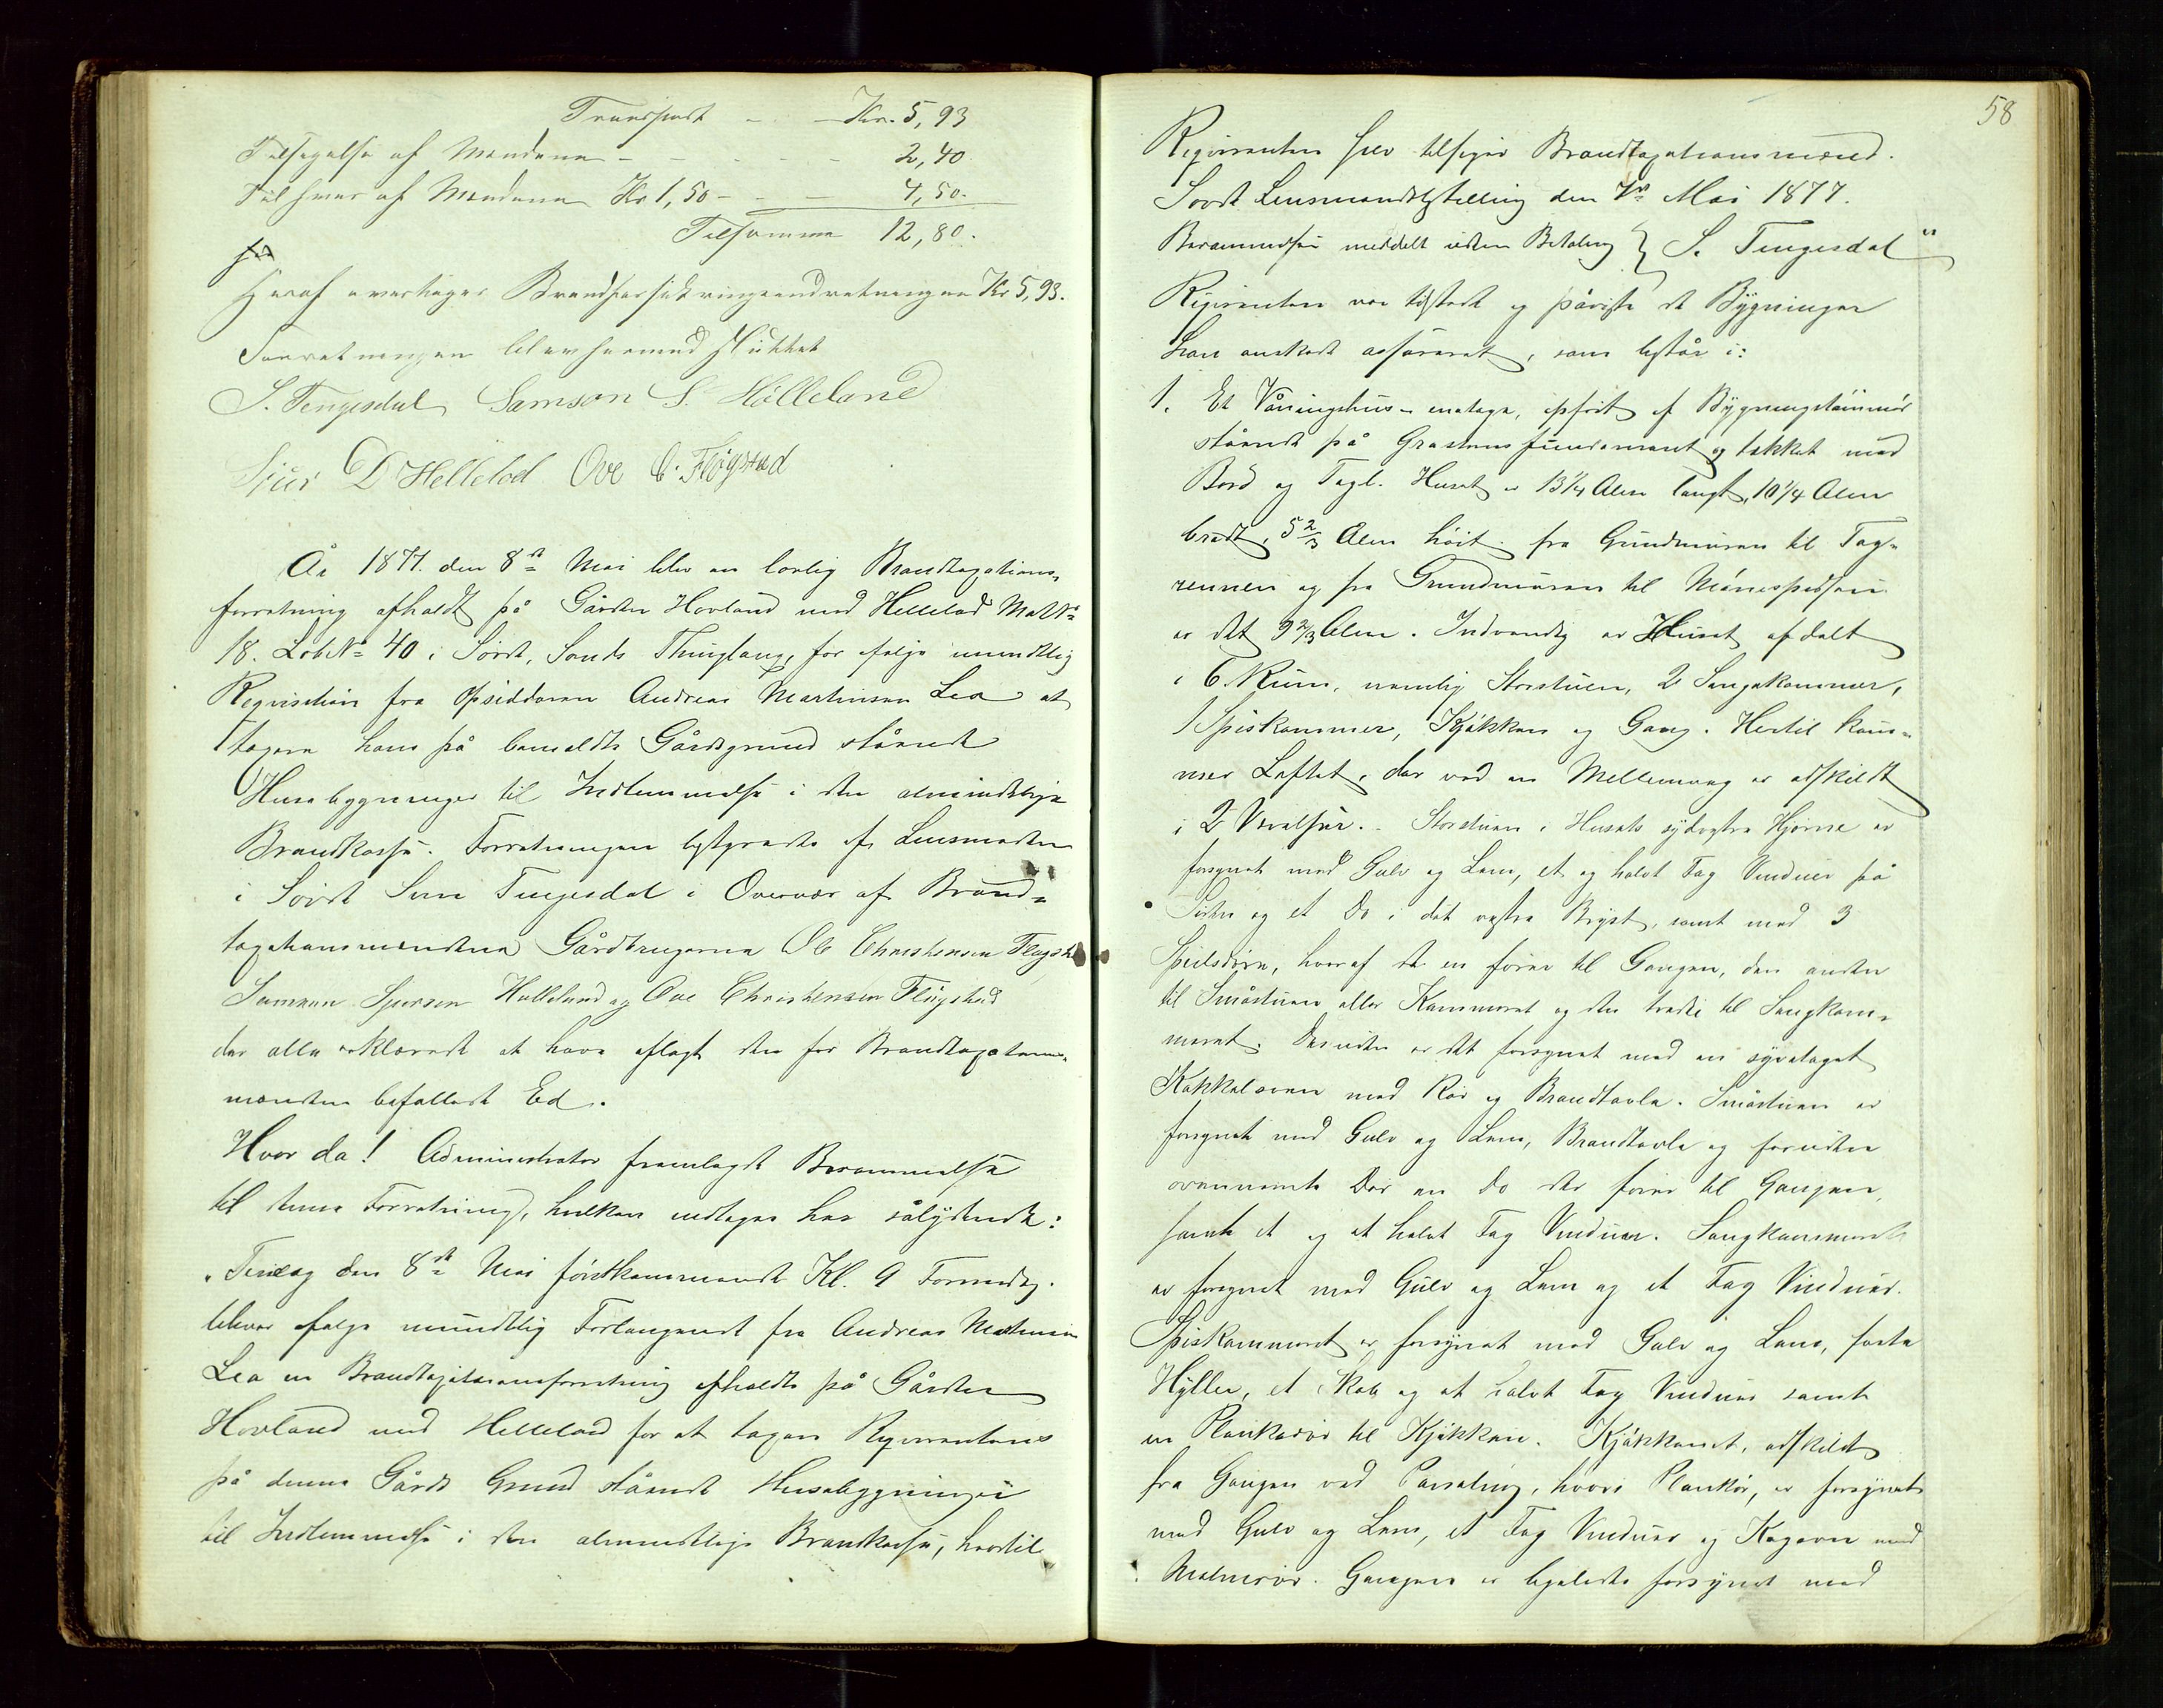 Transport - - Kr. 5,93
Tilsigelse af Mændene - - - - 2,40.
Til hver af Mændene Kr 1,50 - - - 4,50.
Tilsammen 12,80.
Heraf overtager Brandforsikringsindretningen Kr 5,93.
Forretningen blev hermed sluttet
S. Tengesdal Samson S. Hølleland
Sjur D Hellelod Ove C. Fløgstad
År 1877. den 8de Mai blev en lovlig Brandtaxations-
forretning afholdt på Gården Hovland med Helleland Matr №
18. Løb № 40 i Søvde, Sands Thinglaug, for efølge mundtlig
Requisition fra Opsidderen Andreas Martinsen Lea at
taxere hans på bemeldte Gårdsgrund stående
Husebygninger til Indlemmelse i den almindelige
Brandkasse. Forretningen bestyredes af Lensmanden
i Søvde Sven Tengesdal i Overvær af Brand-
taxationsmændene Gårdbrugerne Ole Christensen Fløgstad
Samson Sjursen Helleland og Ove Christensen Fløgstad
der alle erklærede at have aflagt den for Brandtaxations-
mændene befallede Ed.
Hvor da! Administrator fremlagde Berammelse
til denne Forretning, hvilken indtages her sålydende:
"Tirsdag den 8de Mai førstkommende Kl. 9 Formidag.
bliver efølge mundtlig Forlangende fra Andreas Martinsen
Lea en Brandtaxtationsforretning afholdt på Gården
Hovland med Helleland for at taxere Requirentens
på denne Gårds Grund stående Husebygninger
til Indlemmelse i den almindelige Brandkasse, hvortil
58
Requirenten selv tilsiger Brandtaxationsmænd.
Søvde Lensmandsbestilling den 7de Mai 1877.
Berammelsen meddelt uden Betaling } S. Tengesdal "
Requirenten var tilstede og påviste de Bygninger
han ønskede asfureret, som består i:
1. Et Våningshus - enetage, opført af Bygningstømmer
stående på Gråstens fundament og tækket med
Bord og Tegl. Huset er 13 1/4 Alen langt, 10 1/4 Alen
bredt, 5 2/3 Alen høit fra Gundmuren til Tag-
rennen og fra Grundmuren til Mønespidsen
er det 9 2/3 Alen. Indvendig er Huset afdelt
i 6 Rum, nemlig Storstuen, 2 Sengekammer,
1 Spiskammer, Kjøkken og Gang. Hertil kom-
mer Loftet, der ved en Mellemvæg er adskildt
i 2 Værelser. Storstuen i Husets sydvestre Hjørne er
forsynet med Gulv og Lem, et og halvt Fag Vinduer på
Siden og et Do i det vestre Bryst, samt med 3
Speilsdøre, hvoraf de en fører til Gangen, den anden
til Småstuen eller Kammeret og den tredie til Sengekam-
meret. Desuden er det forsynet med en syvetaget
Kakkelovn med Rør og Brandtavle. Småstuen er
forsynet med Gulv og Lem, Brandtavle og foruden
ovennævnte Dør en do der fører til Gangen,
samt et og et halvt Fag Vinduer. Sengkammeret
er forsynet med Gulv og Lem og et Fag Vinduer.
Spiskammeret er forsynet med Gulv og Lem, faste
Hyller, et Skab og et halvt Fag Vinduer samt
en Plankedør til Kjøkken. Kjøkkenet, adskildt
fra Gangen ved Paneling, hvori Plankdør, er forsynet
med Gulv og Lem, et Fag Vinduer og Kogeovn med
Malmrør. Gangen er ligeledes forsynet med